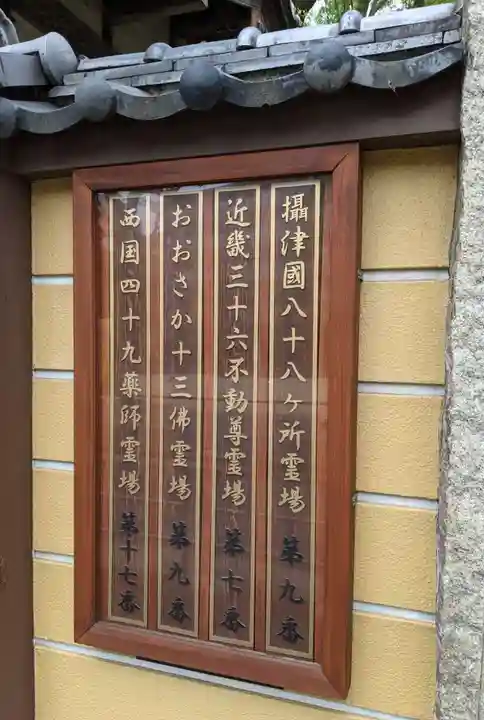 攝津國八十八ヶ所霊場 第九番
近畿三十六不動尊霊場 第七番
おおさか十三佛霊場 第九番
西国四十九薬師霊場 第十七番